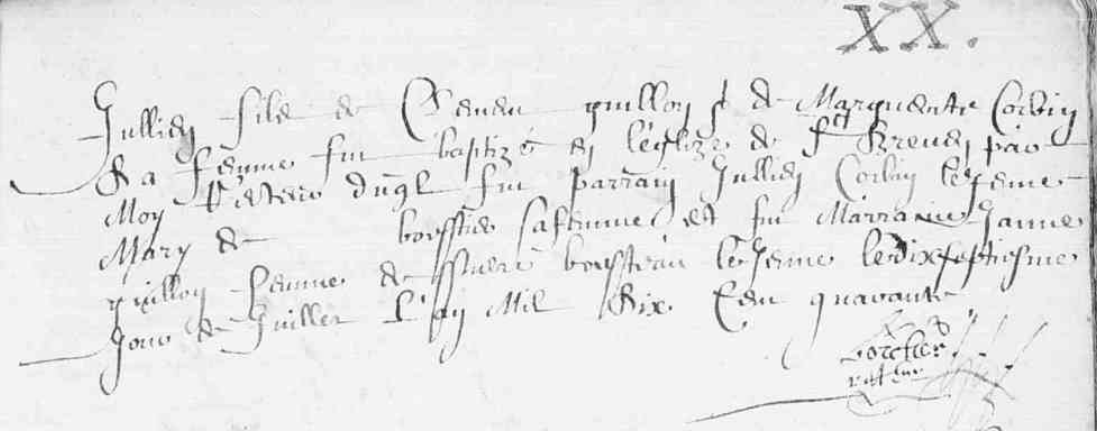 XX.
Jullien filz de Clemen guillon & de Marguerite Corbin
sa femme fut baptizé en l'eglize de St Breven par
Moy Recteur fut parrain Jullien Corbin le Jeune
Mary de bousseau sa femme et fut Marraine Janne
guillon femme de pierre bousseau le Jeune le dixseptiesme
Jour de Juillet L'an Mil Six Cen quarante